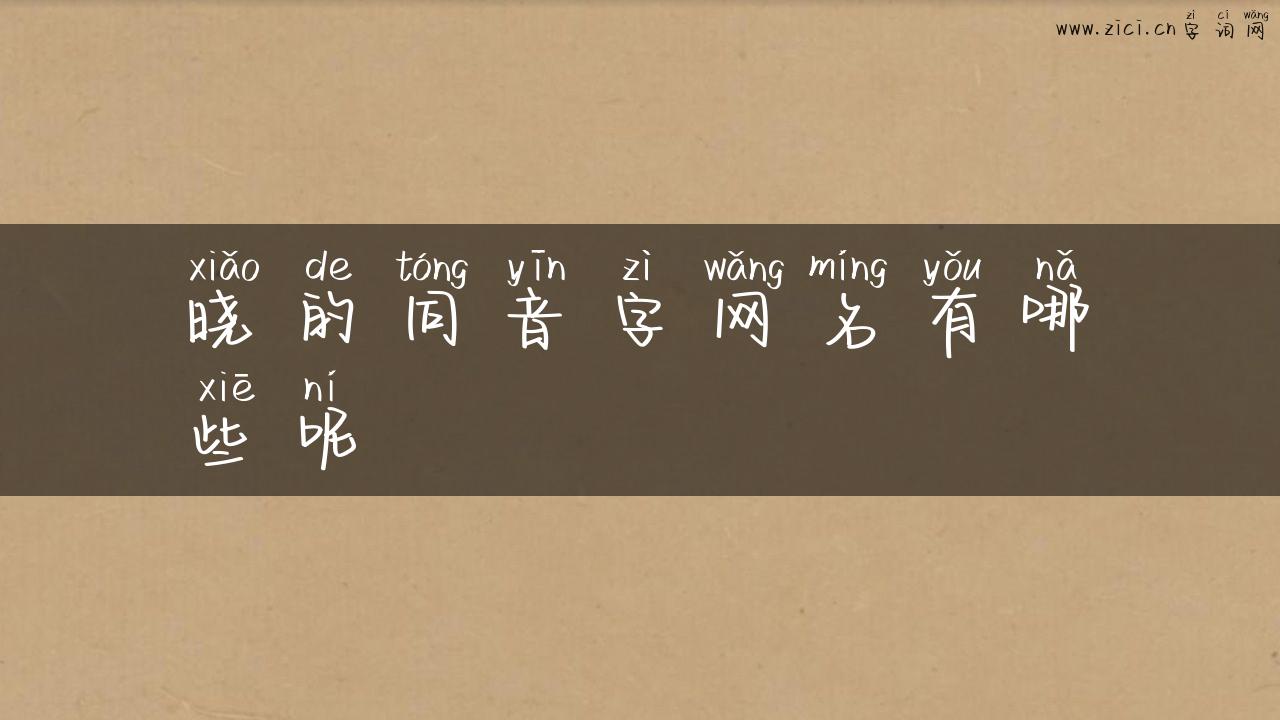 zì cí wǎng
www.zici.cn 字 词 网
xiǎo de tóng yīn zì wǎng míng yǒu nǎ
晓 的 同 音 字 网 名 有 哪
xiē ní
些 呢